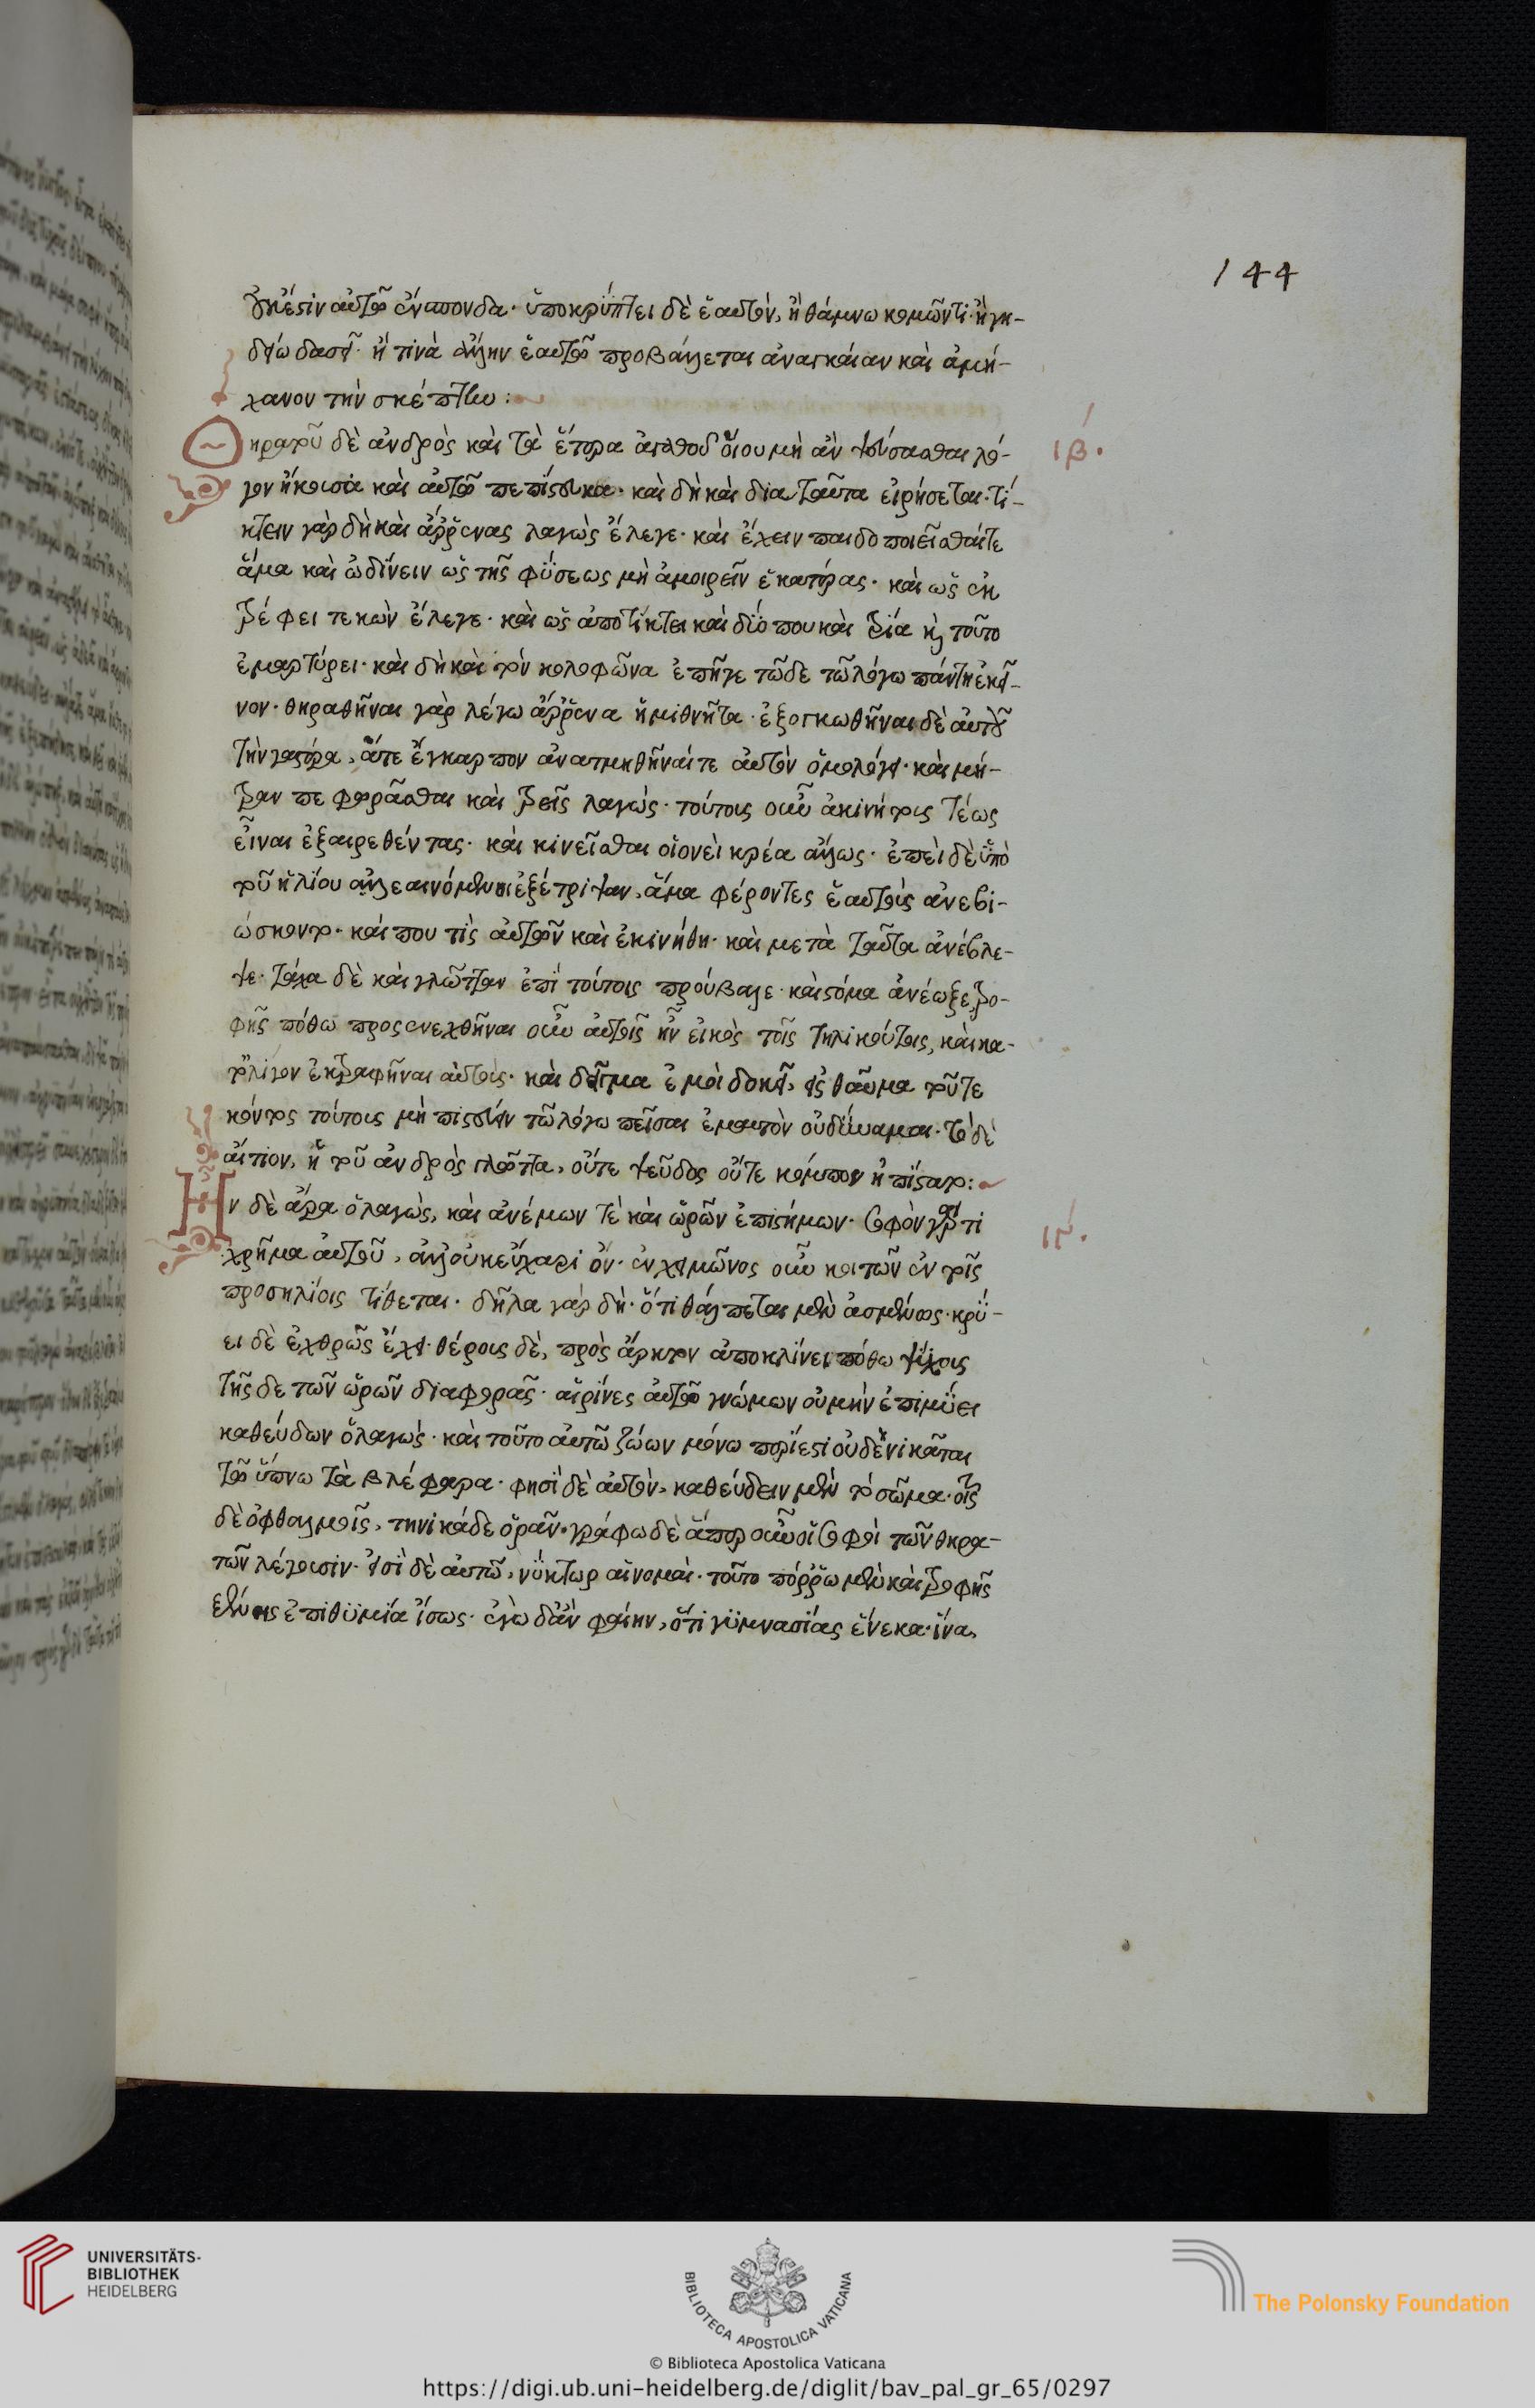 144
οὐκ ἔστιν αὐτῶ ἔνσπονδα· ὑποκρύπτει δὲ ἑαυτὸν, ἢ θάμνω κομῶντι· ἢ γη-
δίω δασεῖ· ἤ τινὰ ἄλλην ἑαυτῶ προβάλλεται ἀναγκαίαν καὶ ἀμή-
χανον τὴν σκέπην:
ιβ΄.
Θηρατοῦ δὲ ἀνδρὸς καὶ τὰ ἕτερα ἀγαθοῦ οἵου μὴ ἂν ψεύσασθαι λό-
γον ἤκουσα καὶ αὐτῶ πεπίστευκα· καὶ δὴ καὶ δια ταῦτα εἰρήσεται· τί-
κτειν γὰρ δὴ καὶ ἄῤῥενας λαγὼς ἔλεγε· καὶ ἔχειν παιδοποιεῖσθαίτε
ἅμα καὶ ὠδίνειν ὡς τῆς φύσεως μὴ ἀμοιρεῖν ἑκατέρας· καὶ ὡς ἐκ
τρέφει τεκὼν ἔλεγε· καὶ ὡς ἀποτίκτει καὶ δύο που καὶ τρία καὶ τοῦτο
ἐμαρτύρει· καὶ δὴ καὶ τὸν κολοφῶνα ἐπῆγε τῶδε τῶ λόγω παντὶ ἐκεῖ-
νον· θηραθῆναι γὰρ λέγω ἄῤῥενα ἡμιθνῆτα· ἐξογκωθῆναι δὲ αὐτοῦ
τὴν γαστέρα, ἅτε ἔγκαρπον ἀνατμηθῆναί τε αὐτὸν ὁμολόγει· καὶ μή-
τραν πεφωρᾶσθαι καὶ τρεῖς λαγώς· τούτοις οὖν ἀκινήτοις τέως
εἶναι ἐξαιρεθέντας· καὶ κινεῖσθαι οἱονεὶ κρέα ἄλλως· ἐπεὶ δὲ ὑπὸ
τοῦ ἡλίου ἀλεαινόμενοι ἐξέτριψαν, ἅμα φέροντες ἑαυτοὺς ἀνεβι-
ώσκοντο· καί που τὶς αὐτῶν καὶ ἐκινήθη· καὶ μετὰ ταῦτα ἀνέβλε-
ψε· τάχα δὲ καὶ γλῶτταν ἐπὶ τούτοις προύβαλε· καὶ στόμα ἀνέωξε τρο-
φῆς πόθω προσενεχθῆναι οὖν αὐτοῖς ἦν εἰκὸς τοῖς τηλικούτοις, καὶ κα-
τολίγον ἐκτραφῆναι αὐτούς· καὶ δεῖγμα ἐμοὶ δοκεῖ, εἰς θαῦμα τοῦτε
κόντος τούτοις μὴ πιστεύειν τῶ λόγω πεῖσαι ἐμαυτὸν οὐ δύναμαι· τὸ δὲ
αἴτιον, ἡ τοῦ ἀνδρὸς γλῶττα, οὔτε ψεῦδος οὔτε κόμπον ἠπίστατο:
ιγ΄.
Ην δὲ ἄρα ὁ λαγὼς, καὶ ἀνέμων τὲ καὶ ὡρῶν ἐπιστήμων· σοφὸν γάρ τι
χρῆμα αὐτοῦ, ἀλλ οὐκ εὔχαρι ὄν· ἐν χειμῶνος οὖν κοιτῶν ἐν τοῖς
προσηλίοις τίθεται· δῆλα γὰρ δὴ· ὅτι θάλπεται μὲν ἀσμένως· κρύ-
ει δὲ ἐχθρῶς ἔχει· θέρους δὲ, πρὸς ἄρκτον ἀποκλίνει πόθω ψύχους
τῆς δε τῶν ὡρῶν διαφορᾶς· αἱ ρίνες αὐτῶ γνώμων οὐ μὴν ἐπιμύει
καθεύδων ὁ λαγώς· καὶ τοῦτο αὐτῶ ζώων μόνω περίεστι οὐδὲ νικᾶται
τῶ ὕπνω τὰ βλέφαρα· φησὶ δὲ αὐτὸν, καθεύδειν μὲν τὸ σῶμα· τοῖς
δὲ ὀφθαλμοῖς, τηνικάδε ὁρᾶν· γράφω δὲ ἅπερ οὖν οἱ σοφοὶ τῶν θηρα-
τῶν λέγουσιν· εἰσὶ δὲ αὐτῶ, νύκτωρ αἱ νομαί· τοῦτο πόῤῥω μὲν καὶ τροφῆς
ξένης ἐπιθυμία ἴσως· ἐγὼ δ᾽ἂν φαίην, ὅτι γυμνασίας ἕνεκα· ἵνα,
UNIVERSITÄTS-
BIBLIOTHEK
HEIDELBERG
BIBLIOTECA APOSTOLICA VATICANA
The Polonsky Foundation
© Biblioteca Apostolica Vaticana
https://digi.ub.uni-heidelberg.de/diglit/bav_pal_gr_65/0297